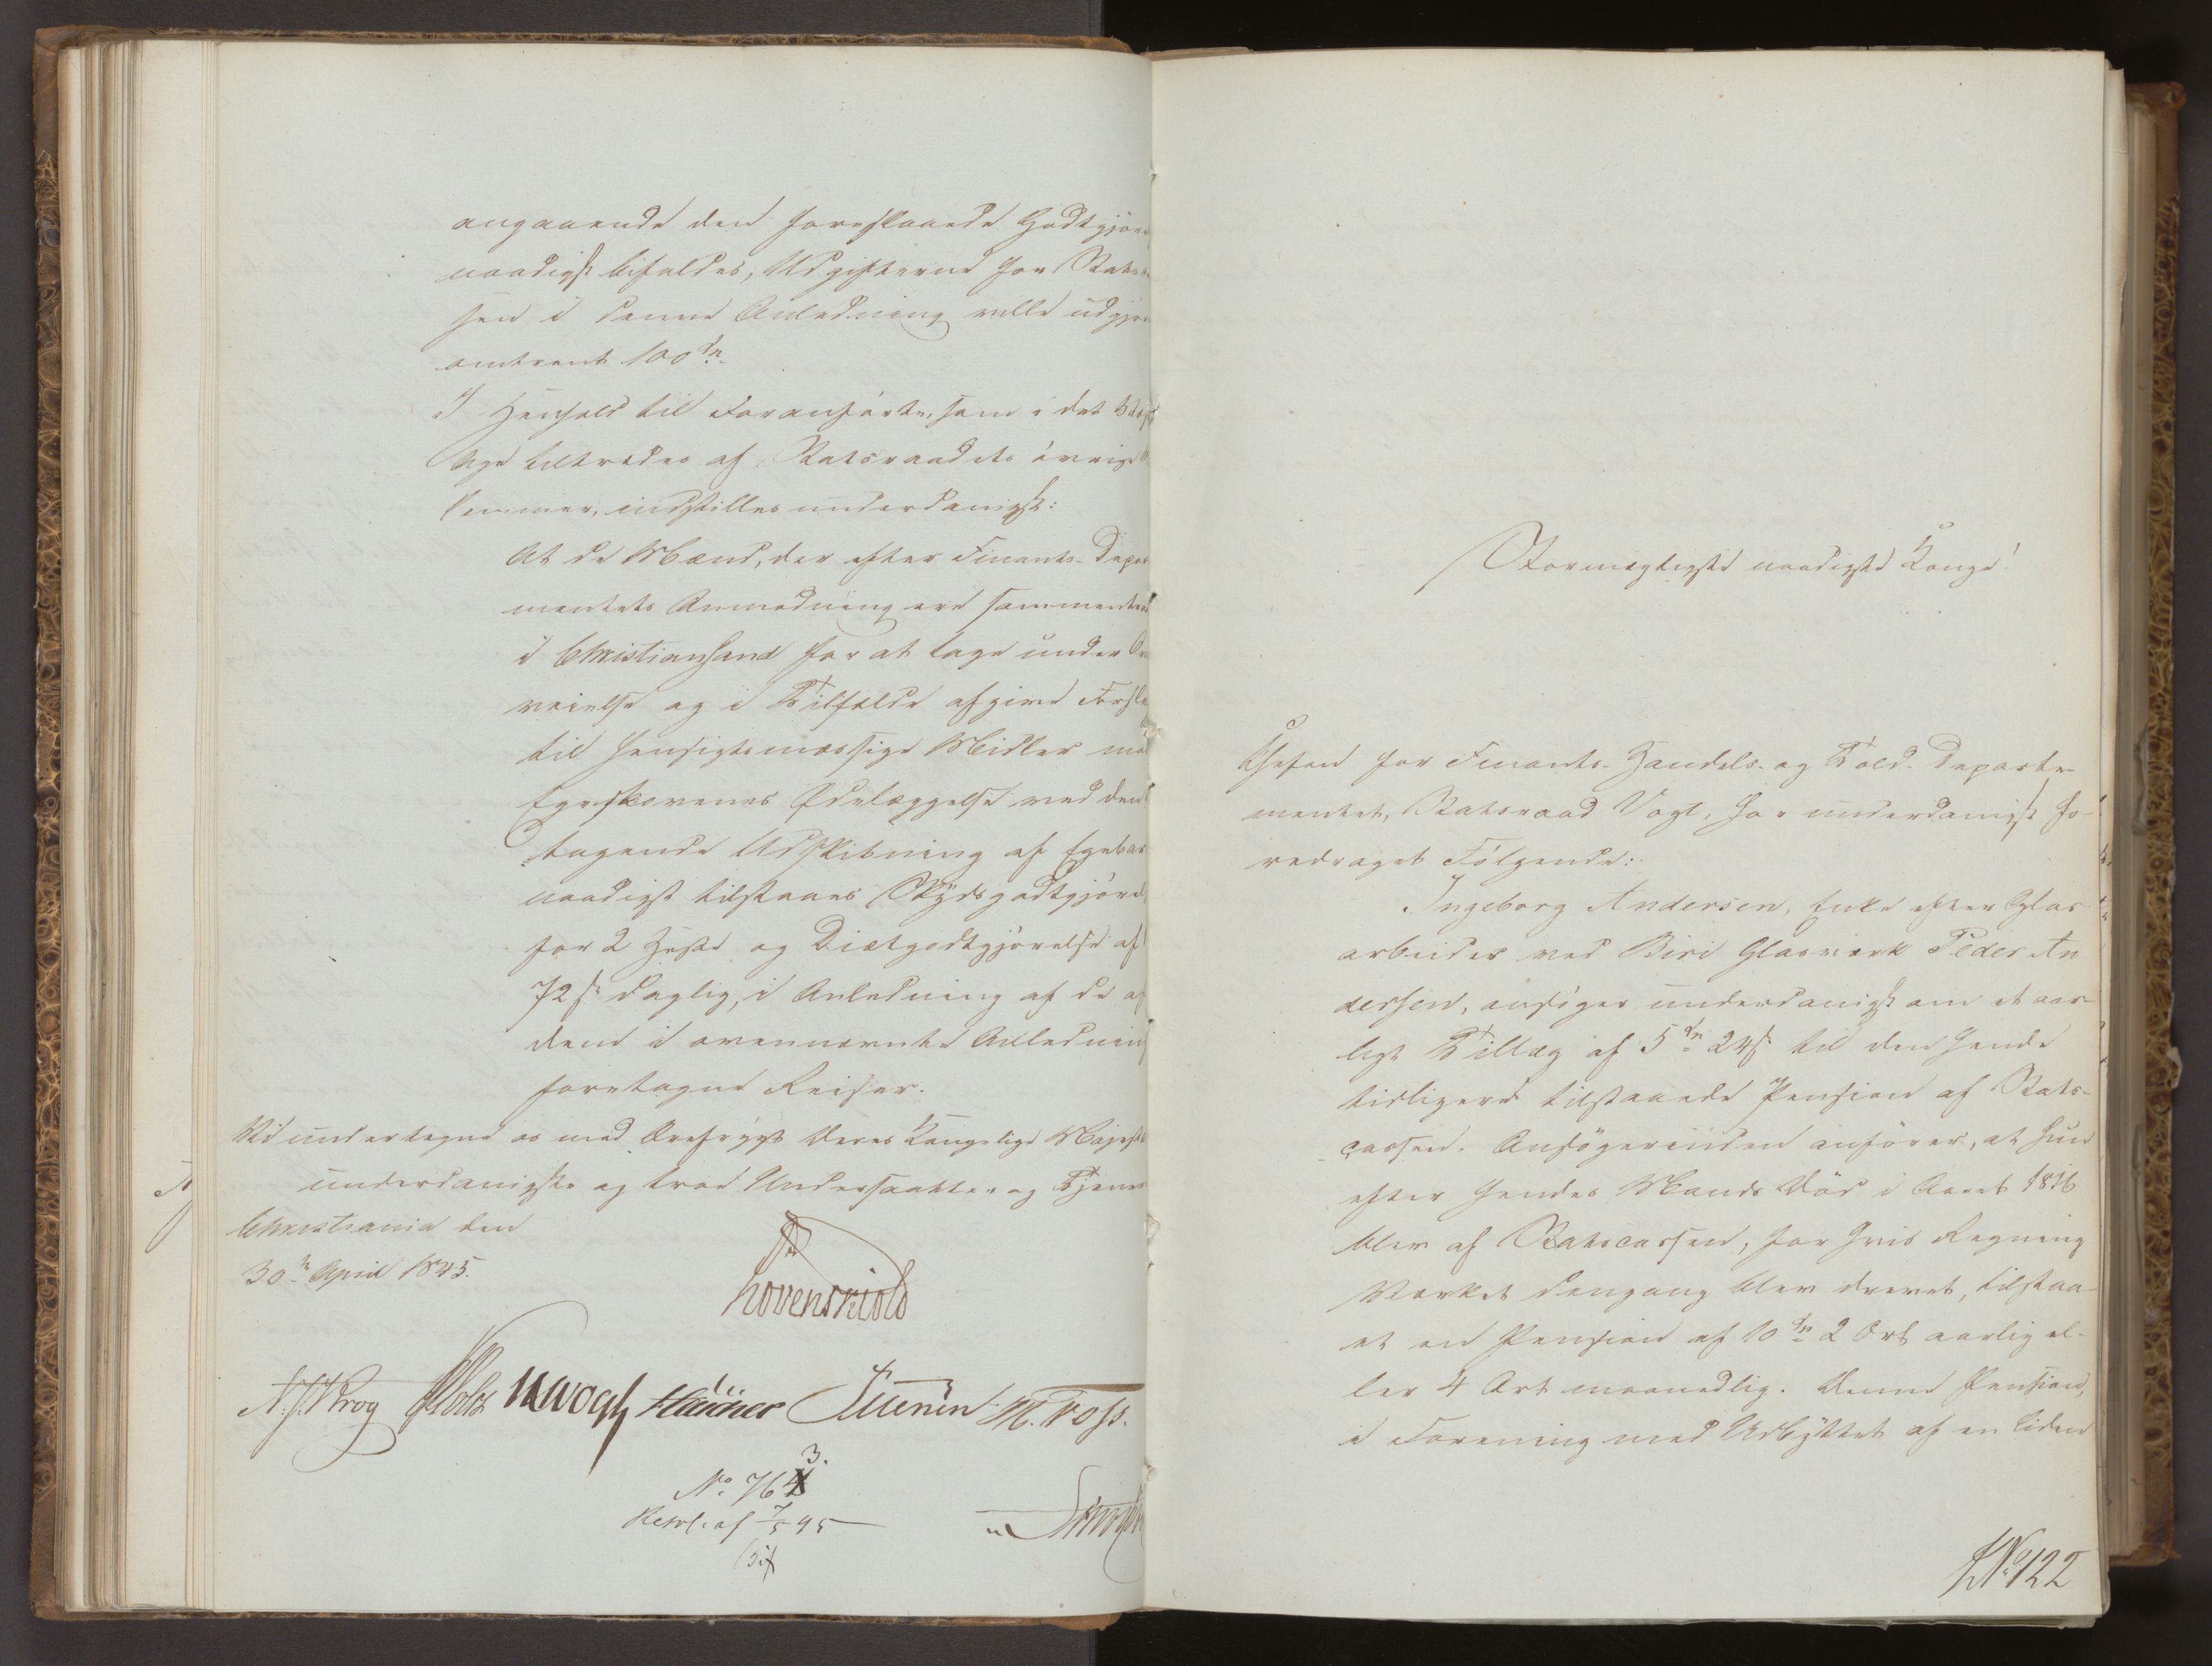 angaaende den foreslaaede Godtgjör
naadigst bifaldes, Udgifterne for Stats
sen i denne Anledning ville udgjö
omtrent 100 Spd.
I Henhold til Foranförte, som i det Væsent
lige tiltrædes af Statsraadets övrige
lemmer, indstilles underdanigst:
At de Mænd, der efter Finants-Depar
mentets Anmodning ere sammentraad
i Christiansand for at tage under Over
veielse og i Tilfælde afgive Forsla
til hensigtsmæssige Midler mod
Egeskovenes Ödelæggelse ved den
tagende Udskibning af Egebark
naadigst tilstaaes Skydsgodtgjörelse
for 2 Heste og Diætgodtgjörelse af
72 s daglig, i Anledning af de af
dem i ovennævnte Anledning
foretagne Reiser.
Vi undertegne os med Ærefrygt Deres Kongelige Majest
underdanigste og troe Undersaatter og Tjenere
Christiania den
30te April 1845.
Lövenskiold
N. J. Krog Holst JHVogt Hauner M. Voss.
No 763.
Resol. af 7/5 45
Stormægtigste naadigste Konge!
Chefen for Finants- Handels- og Told-Departe-
mentet, Statsraad Vogt, har underdanigst fo-
redraget Fölgende:
Ingeborg Andersen, Enke efter Glas
arbeider ved Biri Glasværk Peder An
dersen, ansöger underdanigst om et aar-
ligt Tillæg af 5 Spd 24 s til den hende
tidligere tilstaaede Pension af Stats-
cassen. Ansögerinden anförer, at hun
efter hendes Mands Död i Aaret 1816
blev af Statscassen, for hvis Regning
Værket dengang blev drevet, tilstaa-
et en Pension af 10 Spd 2 Ort aarlig el-
ler 4 Ort maanedlig. Denne Pension,
i Forening med Udbyttet af en liden
No 122